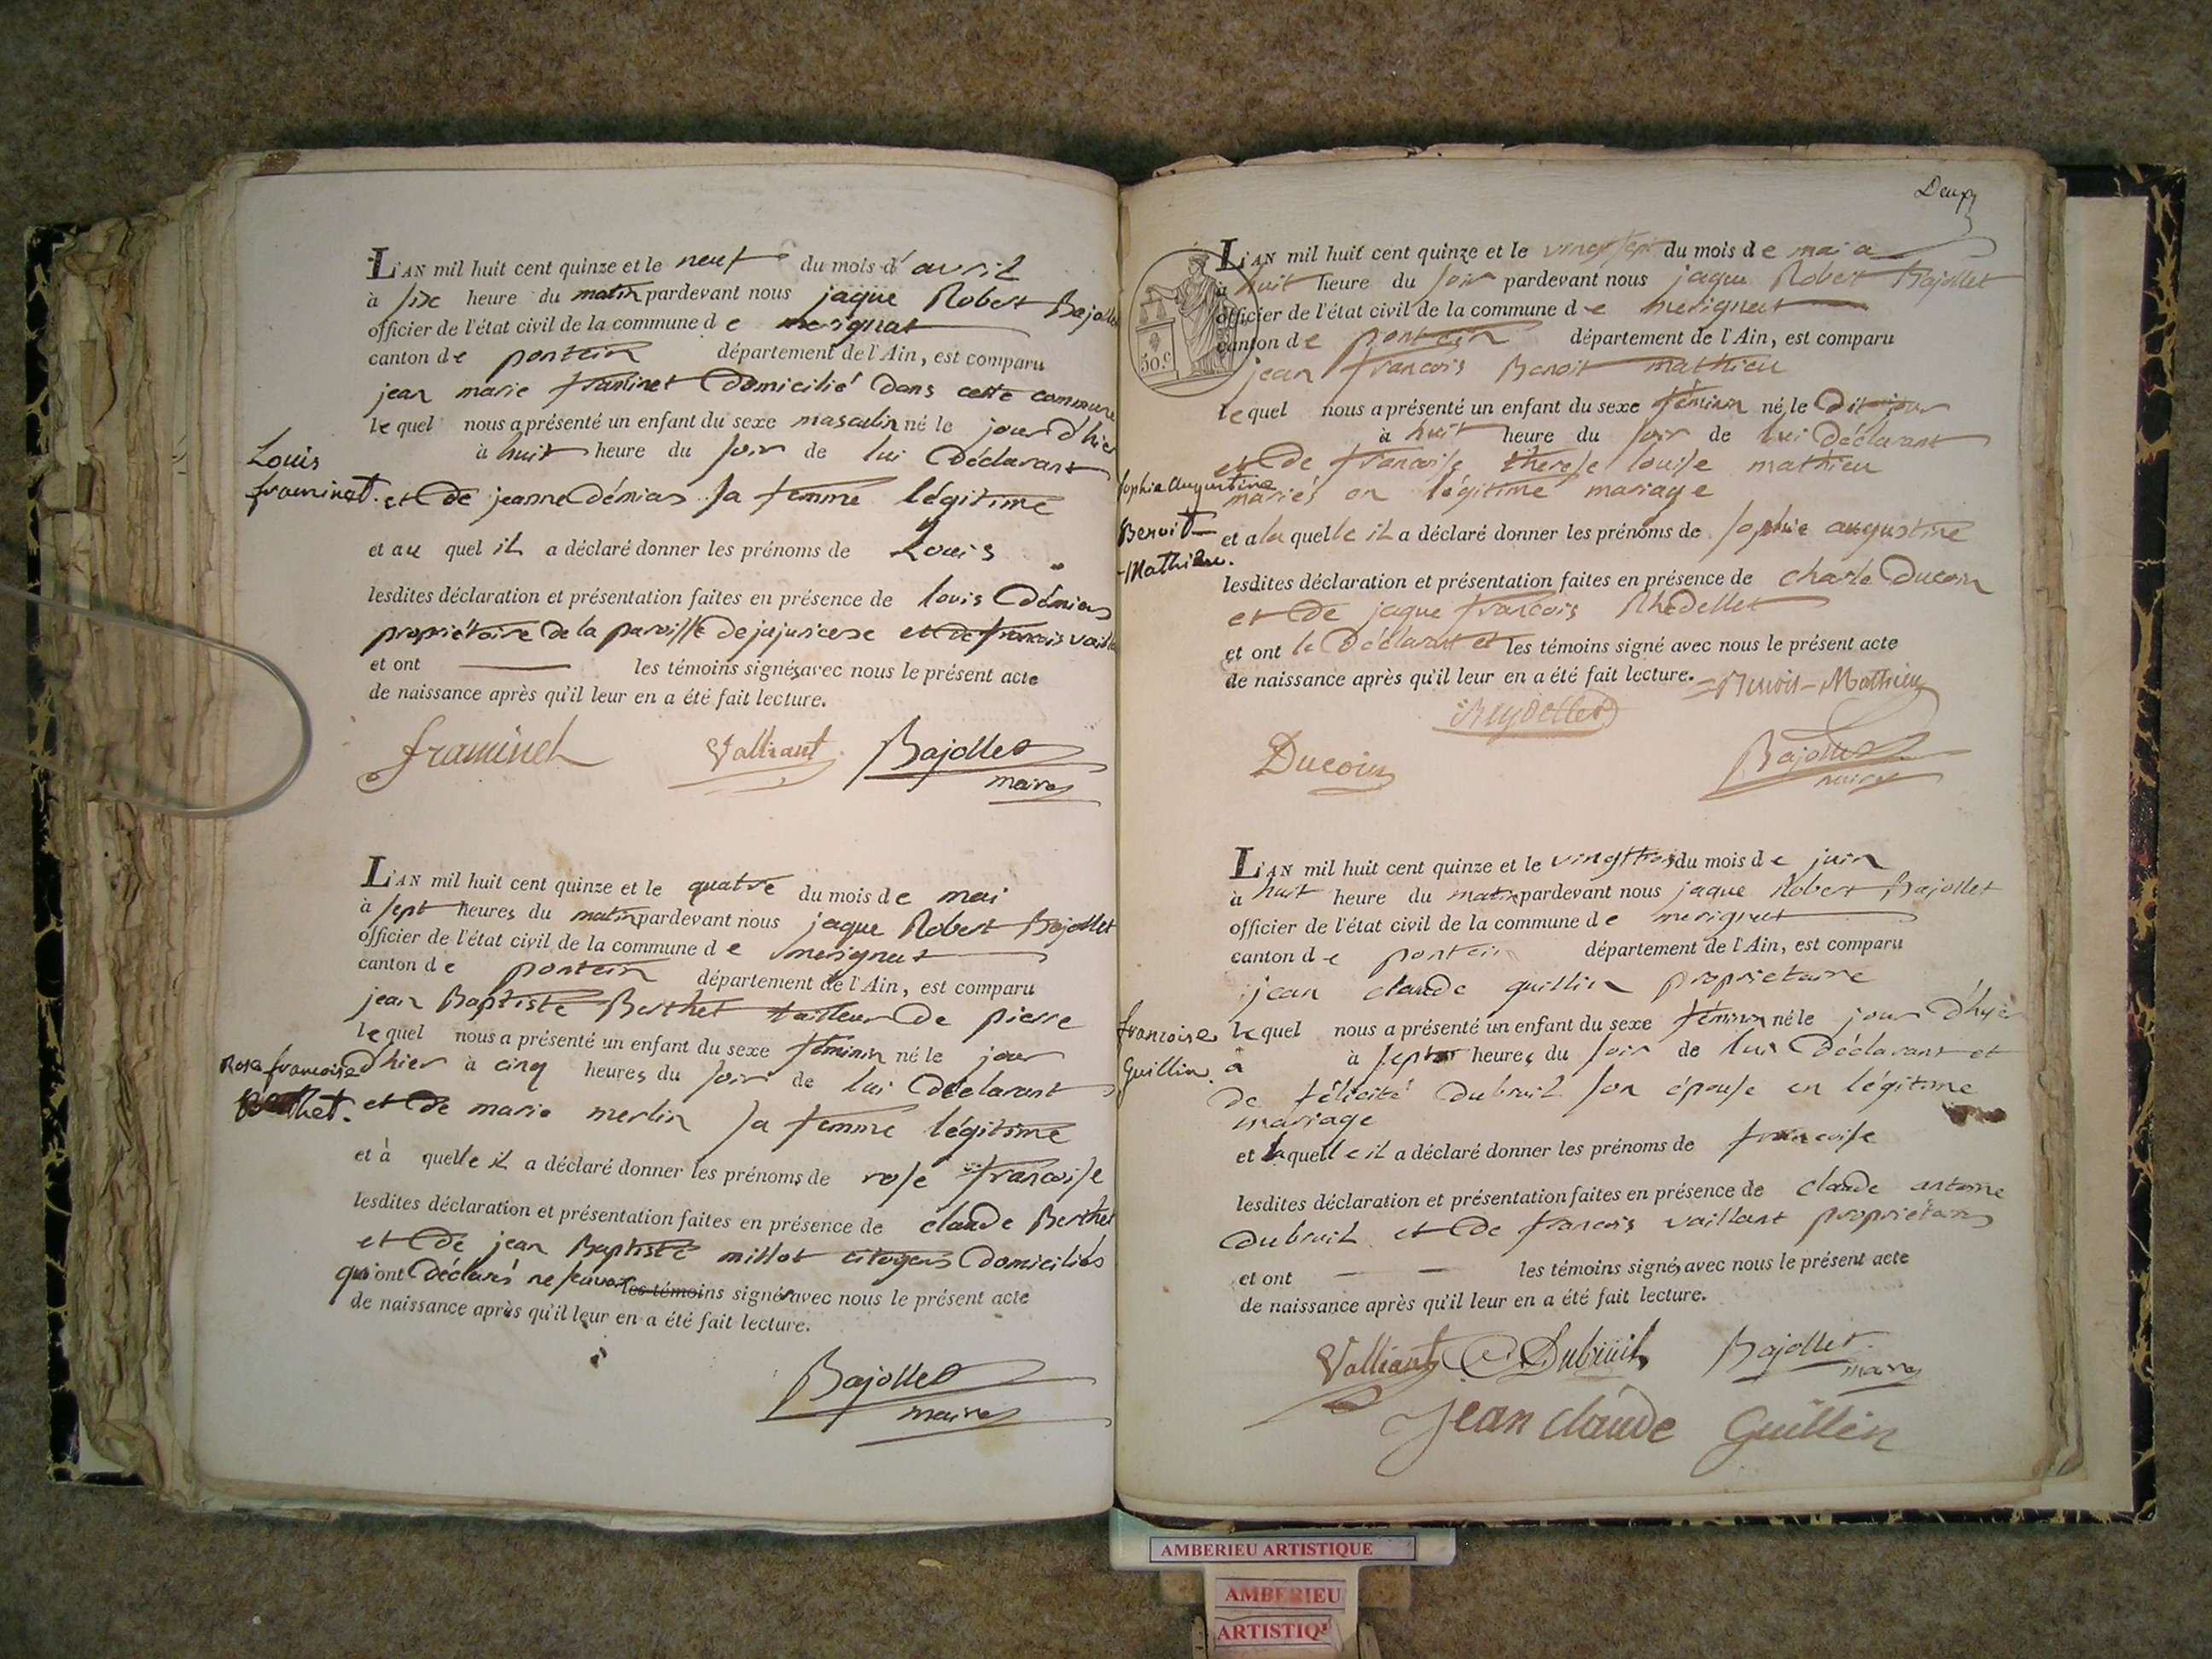 L'AN mil huit cent quinze et le neuf du mois d'avril
à six heure du matin pardevant nous jaque Robert Bajollet
officier de l'état civil de la commune de merignat
canton de pontcin département de l'Ain, est comparu
jean marie framinet Domicilié Dans cette commune
lequel nous a présenté un enfant du sexe masculin né le jour D'hier
à huit heure du soir de lui Déclarant
Louis
framinet.
et De jeanne Démias sa femme légitime
et au quel il a déclaré donner les prénoms de Louis
lesdites déclaration et présentation faites en présence de louis Démias
propriétaire De la paroisse de jujurieux et de francois
et ont les témoins signés avec nous le présent acte
de naissance après qu'il leur en a été fait lecture.
framinet Valliant Bajollet
maire
L'AN mil huit cent quinze et le quatre du mois de mai
à sept heures du matin pardevant nous jaque Robert Bajollet
officier de l'état civil de la commune de merignat
canton de pontcin département de l'Ain, est comparu
jean Baptiste Berthet tailleur De pierre
lequel nous a présenté un enfant du sexe féminin né le jour
Rose francoise
Berthet.
D'hier à cinq heures du soir de lui Déclarant
et De marie merlin sa femme légitime
et à quelle il a déclaré donner les prénoms de rose francoise
lesdites déclaration et présentation faites en présence de claude Berthet
et De jean Baptiste millot citoyens Domiciliés
qui ont Déclarés ne savoir les témoins signés avec nous le présent acte
de naissance après qu'il leur en a été fait lecture.
Bajollet
maire
Deux
L'AN mil huit cent quinze et le vingt sept du mois de mai a
à huit heure du soir pardevant nous jaque Robert Bajollet
officier de l'état civil de la commune de merignat
canton de pontcin département de l'Ain, est comparu
50 c.
jean francois Benoit mathieu
lequel nous a présenté un enfant du sexe féminin né, le Dit jour
à huit heure du soir de lui Déclarant
et De francoise therese louise mathieu
Sophie Augustine
Benoit-
-Mathieu.
mariés en légitime mariage
et a la quelle il a déclaré donner les prénoms de sophie augustine
lesdites déclaration et présentation faites en présence de charle Ducoin
et De jaque francois Rhedellet
et ont le Déclarant et les témoins signé avec nous le présent acte
de naissance après qu'il leur en a été fait lecture. Benoit-Mathieu
Reydellet
Ducoin Bajollet
maire
L'AN mil huit cent quinze et le vingt trois du mois de juin
à huit heure du matin pardevant nous jaque Robert Bajollet
officier de l'état civil de la commune de merignat
canton de pontcin département de l'Ain, est comparu
jean claude guillin proprietaire
francoise
Guillin.
lequel nous a présenté un enfant du sexe féminin né le jour D'hyer
à à sept heures du soir de lui Déclarant et
De félicité Dubreuil son épouse en légitime
mariage
et laquelle il a déclaré donner les prénoms de francoise
lesdites déclaration et présentation faites en présence de claude antoine
Dubruil et De francois vaillant proprietaires
et ont les témoins signés avec nous le présent acte
de naissance après qu'il leur en a été fait lecture.
Valliant Dubruil Bajollet
maire
Jean claude Guillin
AMBERIEU ARTISTIQUE
AMBERIEU
ARTISTIQ